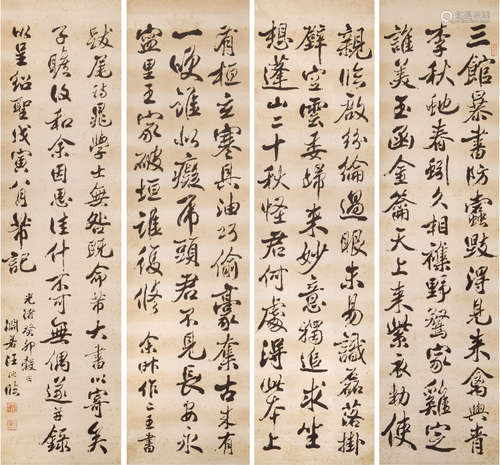 三館暴書防蠹毀得来禽與青
李秋虵春蚓久相襍野騖家雞定
誰美玉函金龠天上来紫衣勅使
親臨啟紛綸過眼未易識磊落掛
壁空雲委歸来妙意獨追求坐
想蓬山二十秋怪君何處得此本上
有桓玄寒具油巧偷豪奪古来有
一咲誰似癡虎頭君不見長安永
寧里王家破垣誰復修 余昨作二王書
跋尾待晁學士無咎既命芾大書以寄矣
子瞻後和余因思佳什不可無偶遂并錄
以呈紹聖戊寅八月芾記
光緒癸卯穀日
淵若汪洵臨